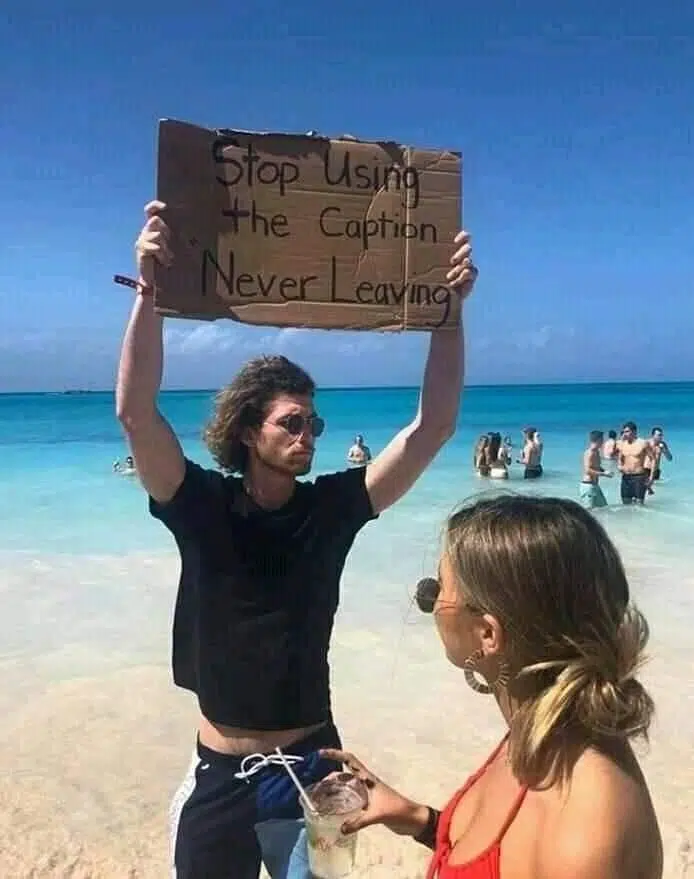 Stop Using
the Caption
"Never Leaving